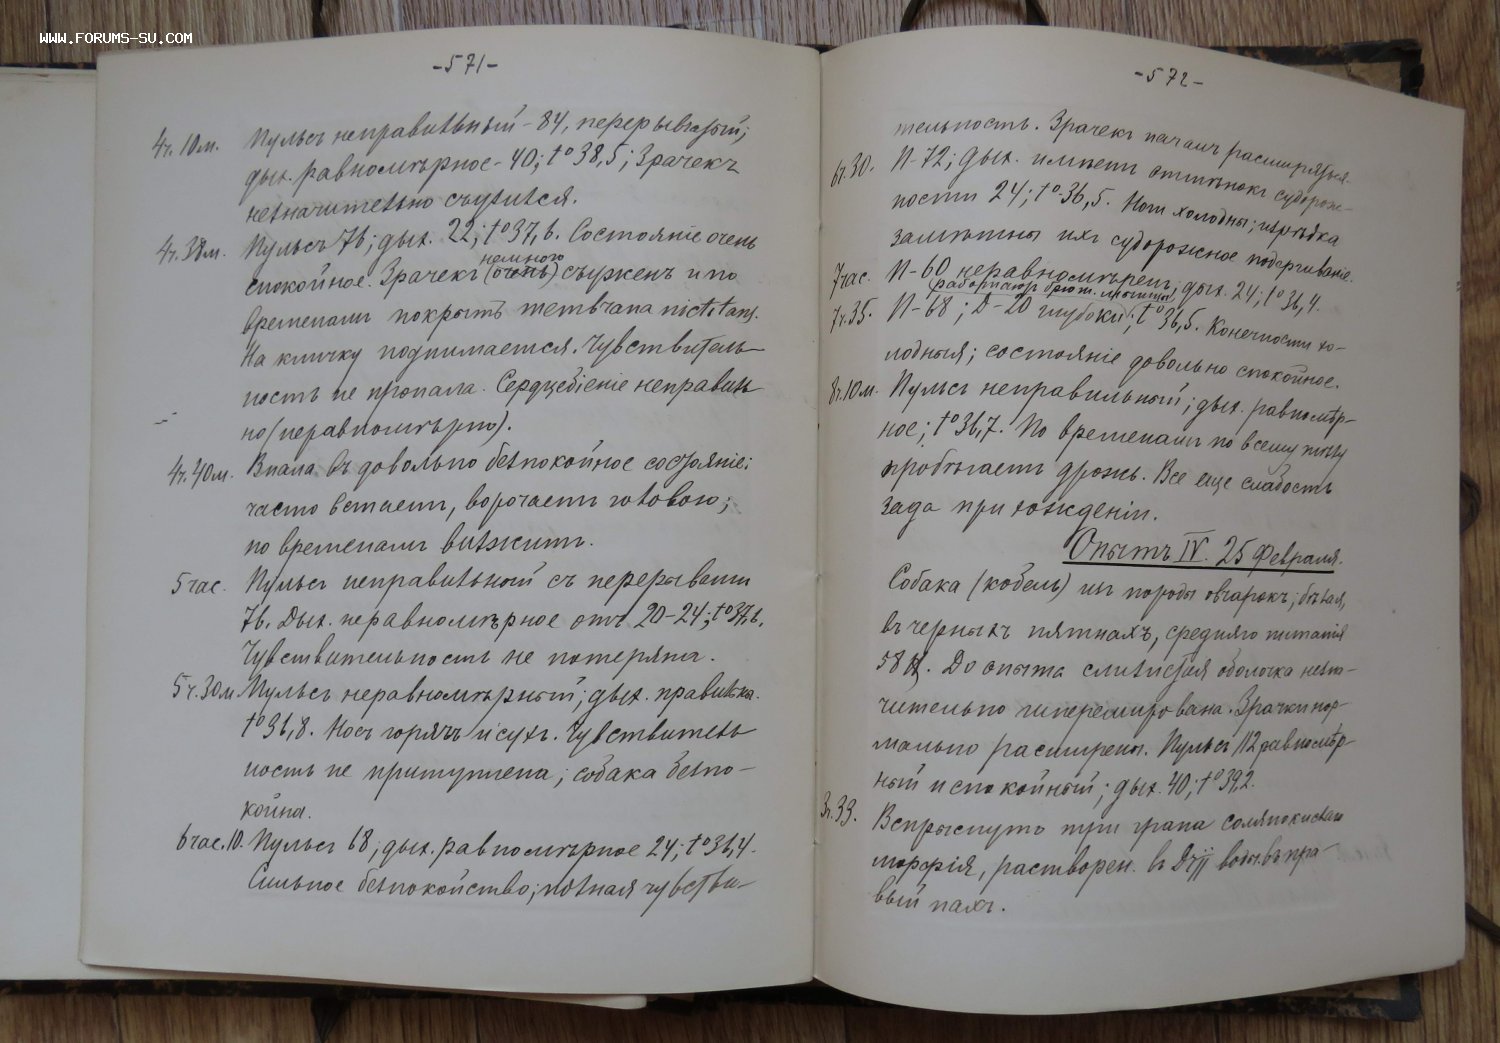 WWW.FORUMS-SU.COM
-571-
4ч. 10м. Пульсъ неправильный - 84, перерывчатый;
дых. равномѣрное - 40; t° 38,5; Зрачекъ
незначительно съузился.
4ч. 38м. Пульсъ 76; дых. 22; t° 37,6. Состояніе очень
немного
спокойное. Зрачекъ (очень) съуженъ и по
временамъ покрытъ membrana nictitans.
На кличку поднимается. Чувствитель-
ность не пропала. Сердцебіеніе неправиль-
но (неравномѣрно).
4ч. 40м. Впала въ довольно безпокойное состояніе;
часто встаетъ, ворочаетъ головою;
по временамъ визжитъ.
5 час. Пульсъ неправильный съ перерывами
76. Дых. неравномѣрное отъ 20-24; t° 37,6.
Чувствительность не потеряна.
5ч. 30м. Пульсъ неравномѣрный; дых. правильн.
t° 36,8. Носъ горячъ и сухъ. Чувствитель-
ность не притуплена; собака безпо-
койна.
6 час. 10. Пульсъ 68; дых. равномѣрное 24; t° 36,4.
Сильное безпокойство; полная чувстви-
-572-
тельность. Зрачекъ началъ расширяться.
6ч. 30. П-72; дых. имѣетъ оттѣнокъ судорож-
ности 24; t° 36,5. Ноги холодны; изрѣдка
замѣтны ихъ судорожное подергиваніе.
7 час. П-60 неравномѣренъ; дых. 24; t° 36,4.
(работаютъ брюш. мышцы)
7ч. 35. П-68; Д-20 глубоки; t° 36,5. Конечности хо-
лодныя; состояніе довольно спокойное.
8ч. 10м. Пульсъ неправильный; дых. равномѣр-
ное; t° 36,7. По временамъ по всему тѣлу
пробѣгаетъ дрожь. Все еще слабость
зада при хожденіи.
Опытъ IV. 25 Февраля.
Собака (кобель) изъ породы овчарокъ; бѣлая,
въ черныхъ пятнахъ, средняго питанія
58 ℔. До опыта слизистая оболочка незна-
чительно гиперемирована. Зрачки нор-
мально расширены. Пульсъ 112 равномѣр-
ный и спокойный; дых. 40; t° 39,2.
3ч. 33. Вспрыснуто три грана солянокислаго
морфія, растворен. въ Дrjj воды въ пра-
вый пахъ.